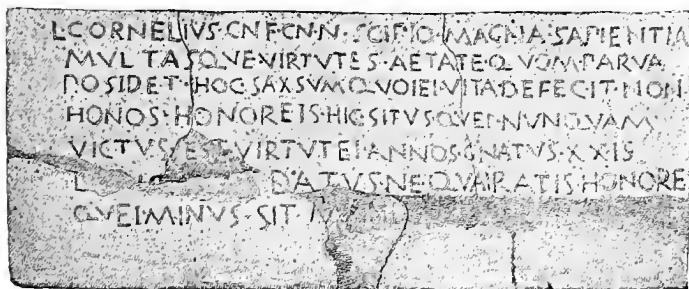 L·CORNELIVS·CN·F·CN·N·SCIPIO·MAGNA·SAPIENTIA
MVLTASQVE·VIRTVTES·AETATE·QVOM·PARVA
POSIDET·HOC·SAXSVM·QVOIEI·VITA·DEFECIT·NON
HONOS·HONORE·IS·HIC·SITVS·QVEI·NVNQVAM
VICTVS·EST·VIRTVTEI·ANNOS·GNATVS·XX·IS
L DATVS·NE·QVAIRATIS·HONORE
QVEI·MINVS·SIT